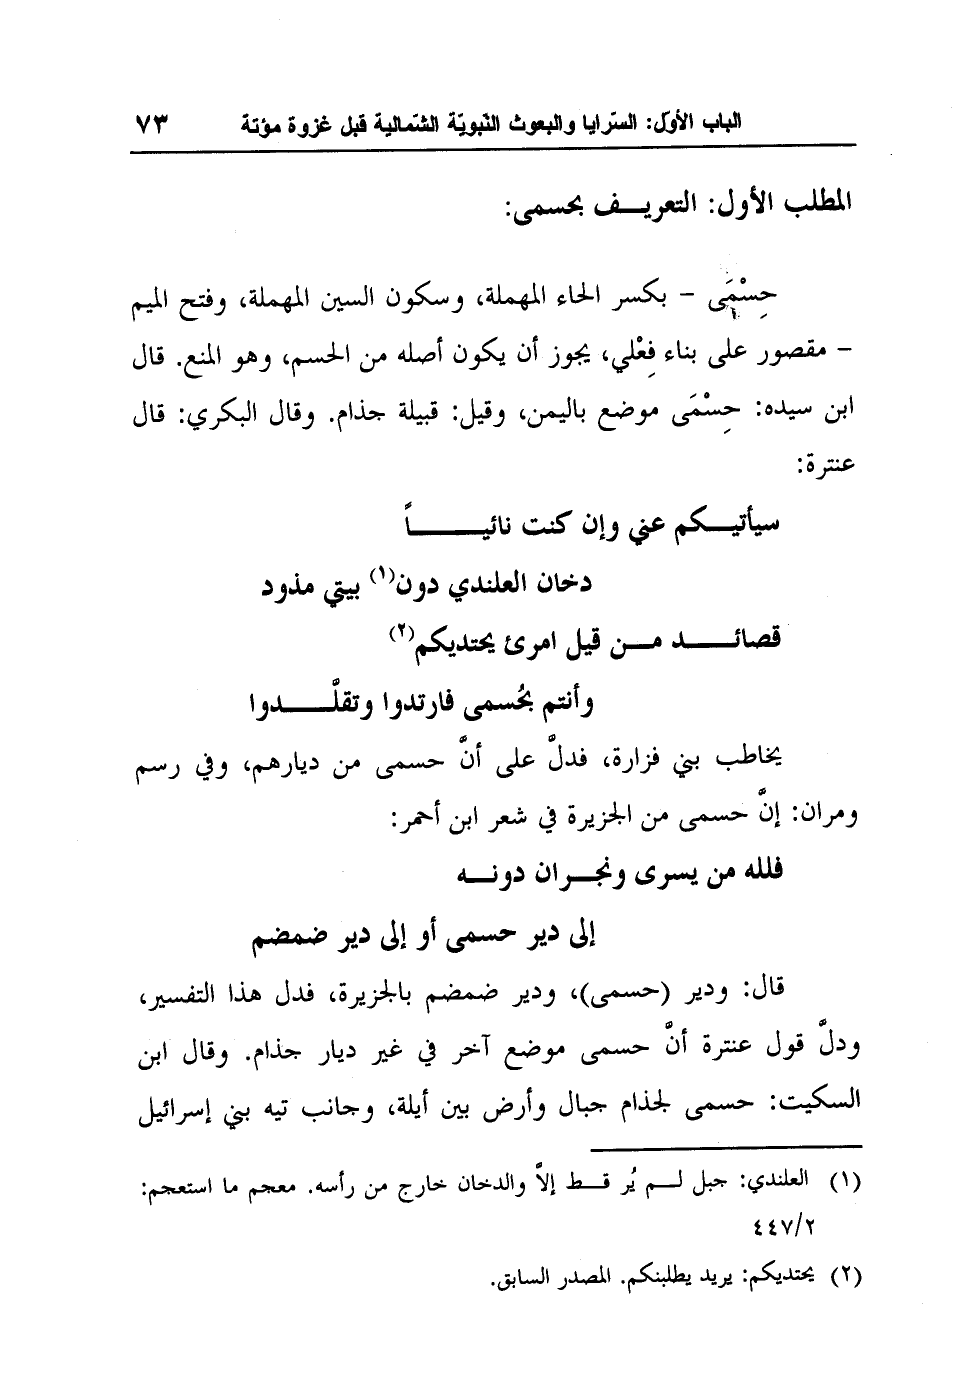 الباب الأوّل: السّرايا والبعوث النّبويّة الشّمالية قبل غزوة مؤتة ٧٣
المطلب الأول: التعريف بحسمى:
حِسْمَى – بكسر الحاء المهملة، وسكون السين المهملة، وفتح الميم
– مقصور على بناء فِعْلي، يجوز أن يكون أصله من الحسم، وهو المنع. قال
ابن سيده: حِسْمَى موضع باليمن، وقيل: قبيلة جذام. وقال البكري: قال
عنترة:
سيأتيكم عني وإن كنت نائياً
دخان العلندي دون(١) بيتي مذود
قصائد من قيل امرئ يحتديكم(٢)
وأنتم بحُسمى فارتدوا وتقلَّدوا
يخاطب بني فزارة، فدلَّ على أنَّ حسمى من ديارهم، وفي رسم
ومران: إنَّ حسمى من الجزيرة في شعر ابن أحمر:
فلله من يسرى ونجران دونه
إلى دير حسمى أو إلى دير ضمضم
قال: ودير (حسمى)، ودير ضمضم بالجزيرة، فدل هذا التفسير،
ودلَّ قول عنترة أنَّ حسمى موضع آخر في غير ديار جذام. وقال ابن
السكيت: حسمى لجذام جبال وأرض بين أيلة، وجانب تيه بني إسرائيل
(١) العلندي: جبل لم يُر قط إلاَّ والدخان خارج من رأسه. معجم ما استعجم:
٤٤٧/٢
(٢) يحتديكم: يريد يطلبنكم. المصدر السابق.